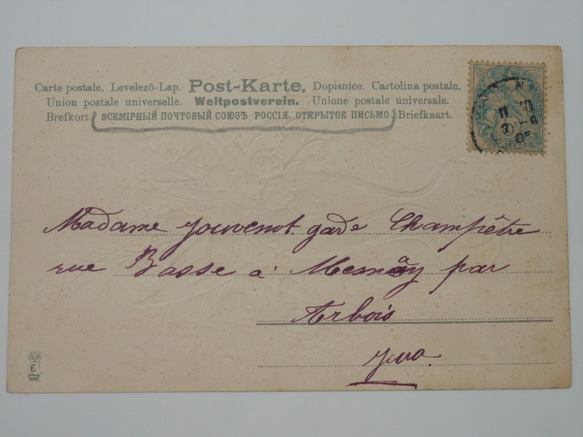 Carte postale. Levelezö-Lap. Post-Karte. Dopisnice. Cartolina postale.
Union postale universelle. Weltpostverein. Unione postale universale.
Brefkort. ВСЕМІРНЫЙ ПОЧТОВЫЙ СОЮЗЪ РОССІЯ. ОТКРЫТОЕ ПИСЬМО Briefkaart.
Madame Jouvenot garde Champêtre
rue Basse à Mesnay par
Arbois
Jura
E